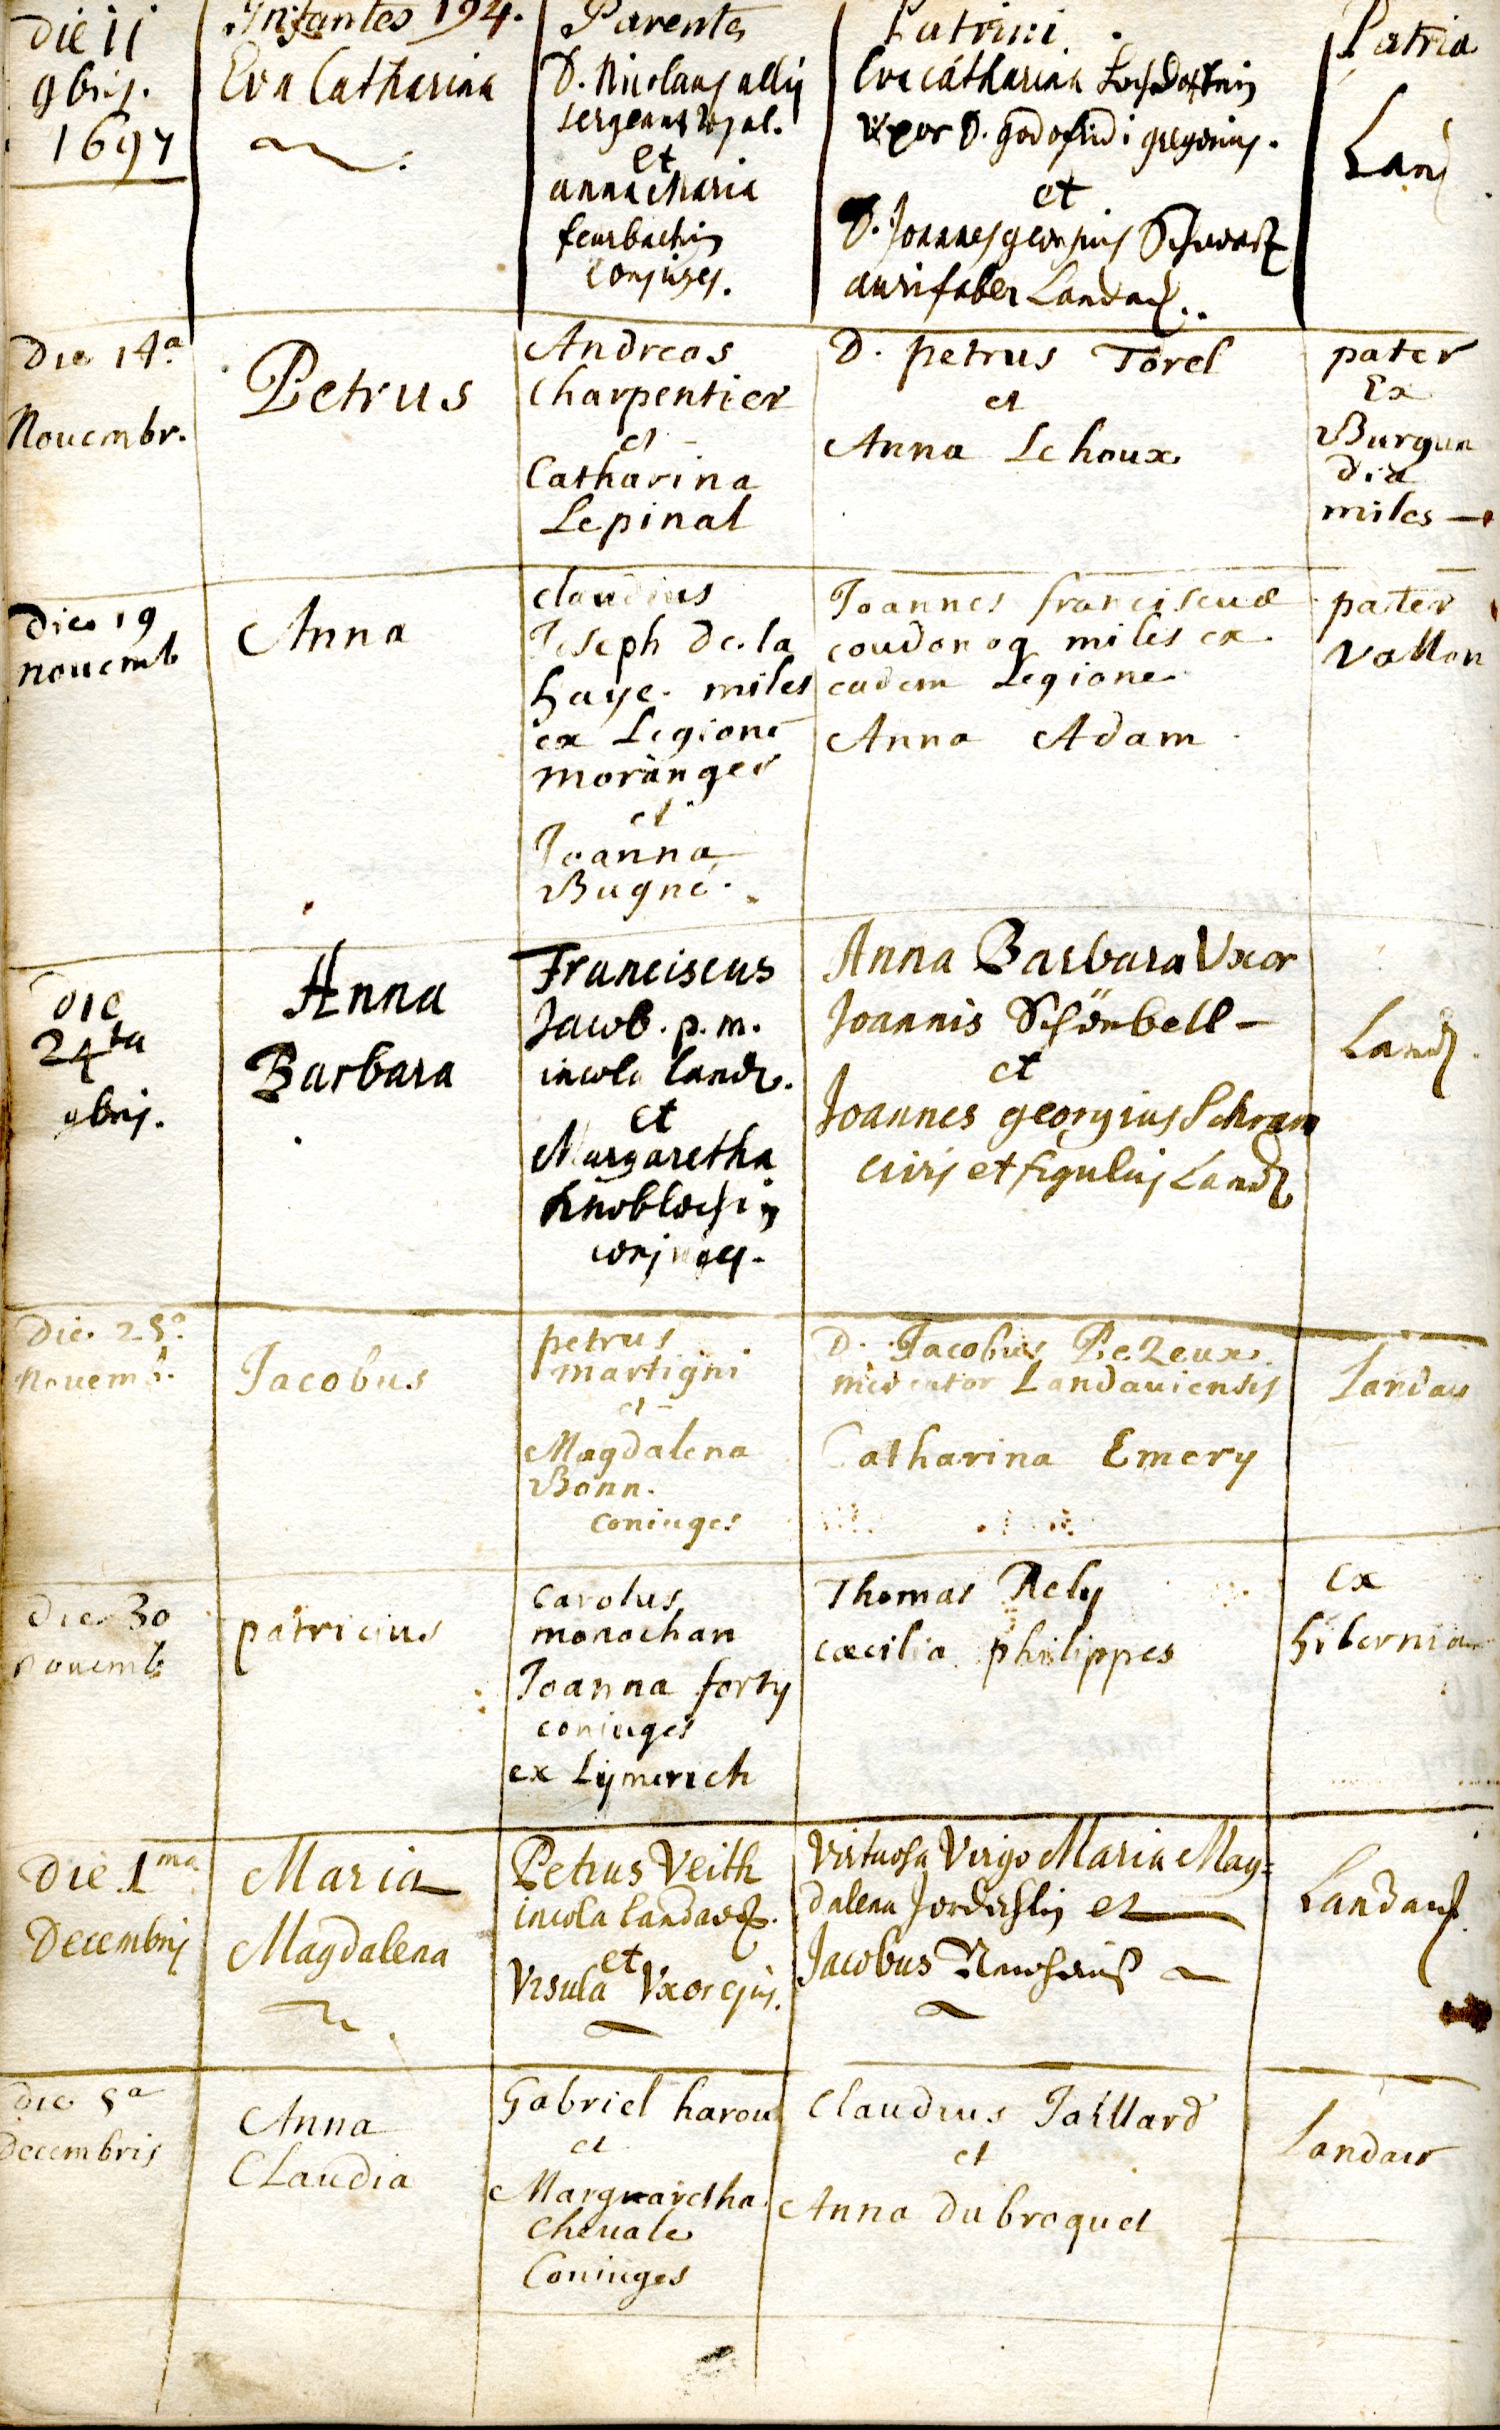 Die 11
9bris.
1697
Infantes 194.
Eva Catharina
Parentes
D. Nicolaus allij
sergeant royal.
et
anna Maria
feurbachin
Conjuges.
Patrini
Eva catharina
Uxor D. godofridi gregorius.
et
D. Joannes georgius Schwartz
aurifaber Landau.
Patria
Land
Die 14a
Novembr.
Petrus
Andreas
Charpentier
et
Catharina
Lepinal
D. petrus Torel
et
Anna Lehoux
pater
Ex
Burgun
dia
miles
Die 19
novemb
Anna
claudius
Joseph de la
haye. miles
ex Legione
moranges
et
Joanna
Bugné.
Joannes franciscus
coudonoq miles ex
eadem Legione
Anna Adam
pater
vallon
Die
24ta
9bris.
Anna
Barbara
Franciscus
Jacob. p. m.
incola land.
et
Margaretha
Knoblochin
conjuges.
Anna Barbara Uxor
Joannis Schönbell
et
Joannes georgius Schram
civis et figulus Land
Land
Die 25a
Novemb.
Jacobus
petrus
martigni
et
Magdalena
Bonn.
coniuges
D. Jacobus Pezeux
mercator Landaviensis
Catharina Emery
Landau
Die 30
novemb
patricius
carolus
monochan
Joanna forty
coniuges
ex Lijmerich
Thomas Rely
cæcilia philippes
ex
hibernia
Die 1ma
Decembris
Maria
Magdalena
Petrus Veith
incola Landau.
et
Ursula Uxor ejus.
Virtuosa Virgo Maria Mag=
dalena et
Jacobus
Landau
Die 5a
Decembris
Anna
Claudia
Gabriel harou
et
Marguaretha
chevale
Coniuges
Claudius Jaillard
et
Anna dubroquet
Landau